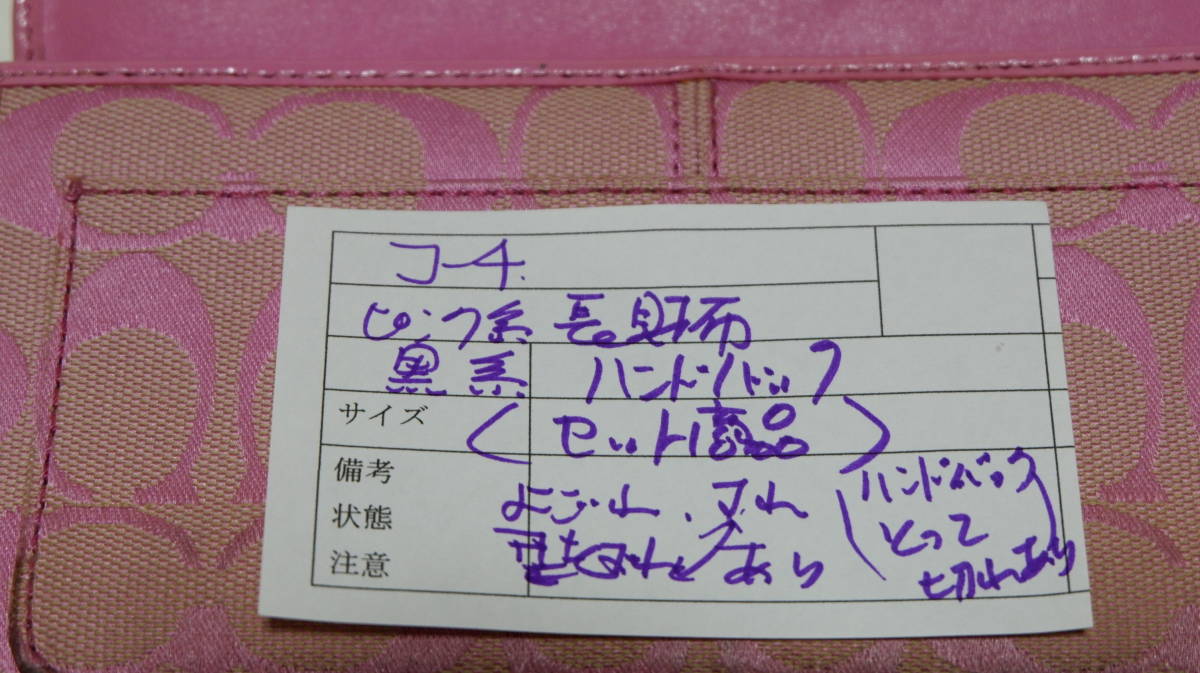 コーチ
ピンク系 長財布
黒系 ハンドバック
サイズ (セット商品)
備考 よごれ、スれ (ハンドバック
状態 型むれ あり とって
注意 切れあり)